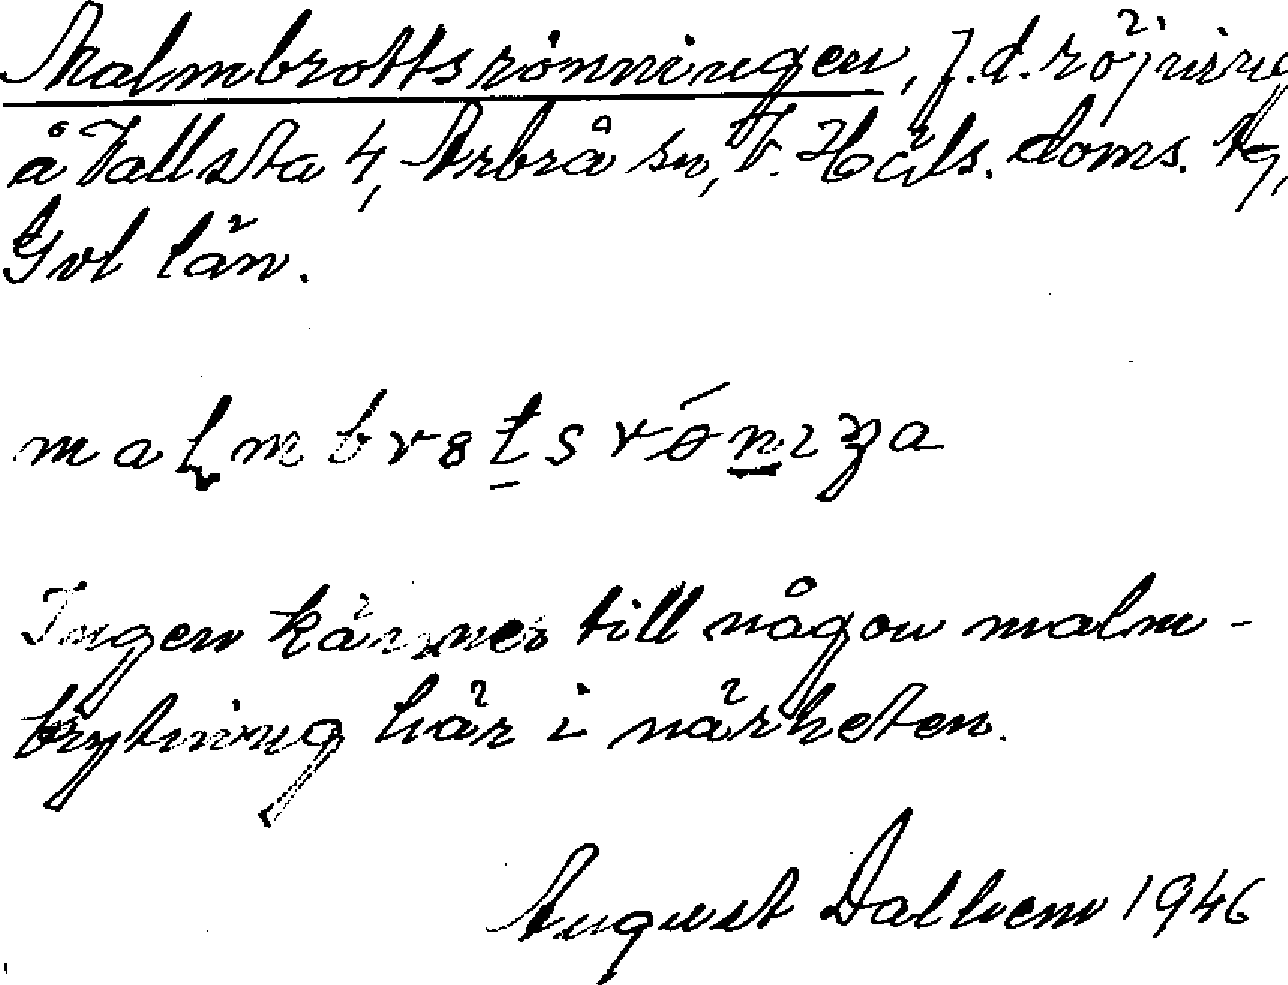 Malmbrottsrönningen, f.d. röjning
å Vallsta 4, Arbrå sn, V. Häls. doms. tg,
Gvl län.
Ingen känner till någon malm-
brytning här i närheten.
August Dalhem 1946